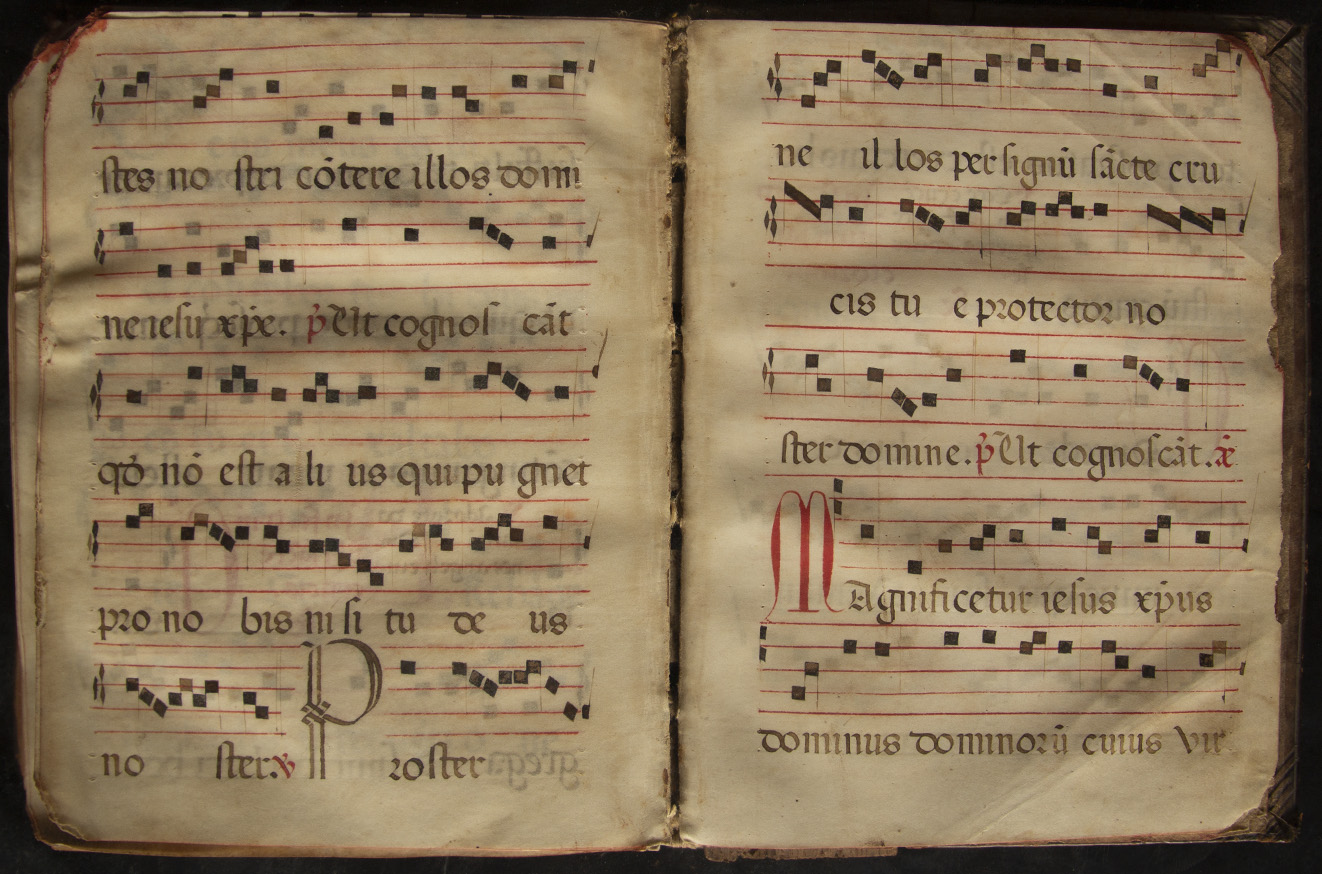 stes no stri cōtere illos domi
ne iesu xp̄e. p̄ Ut cognos cāt
qđ nō est a li us qui pu gnet
pro no bis ni si tu de us
no ster. v Proster
ne il los per signū sācte cru
cis tu e protector no
ster domine. p̄ Ut cognoscāt. x̄
MAgnificetur iesus xp̄us
dominus dominorū cuius vir